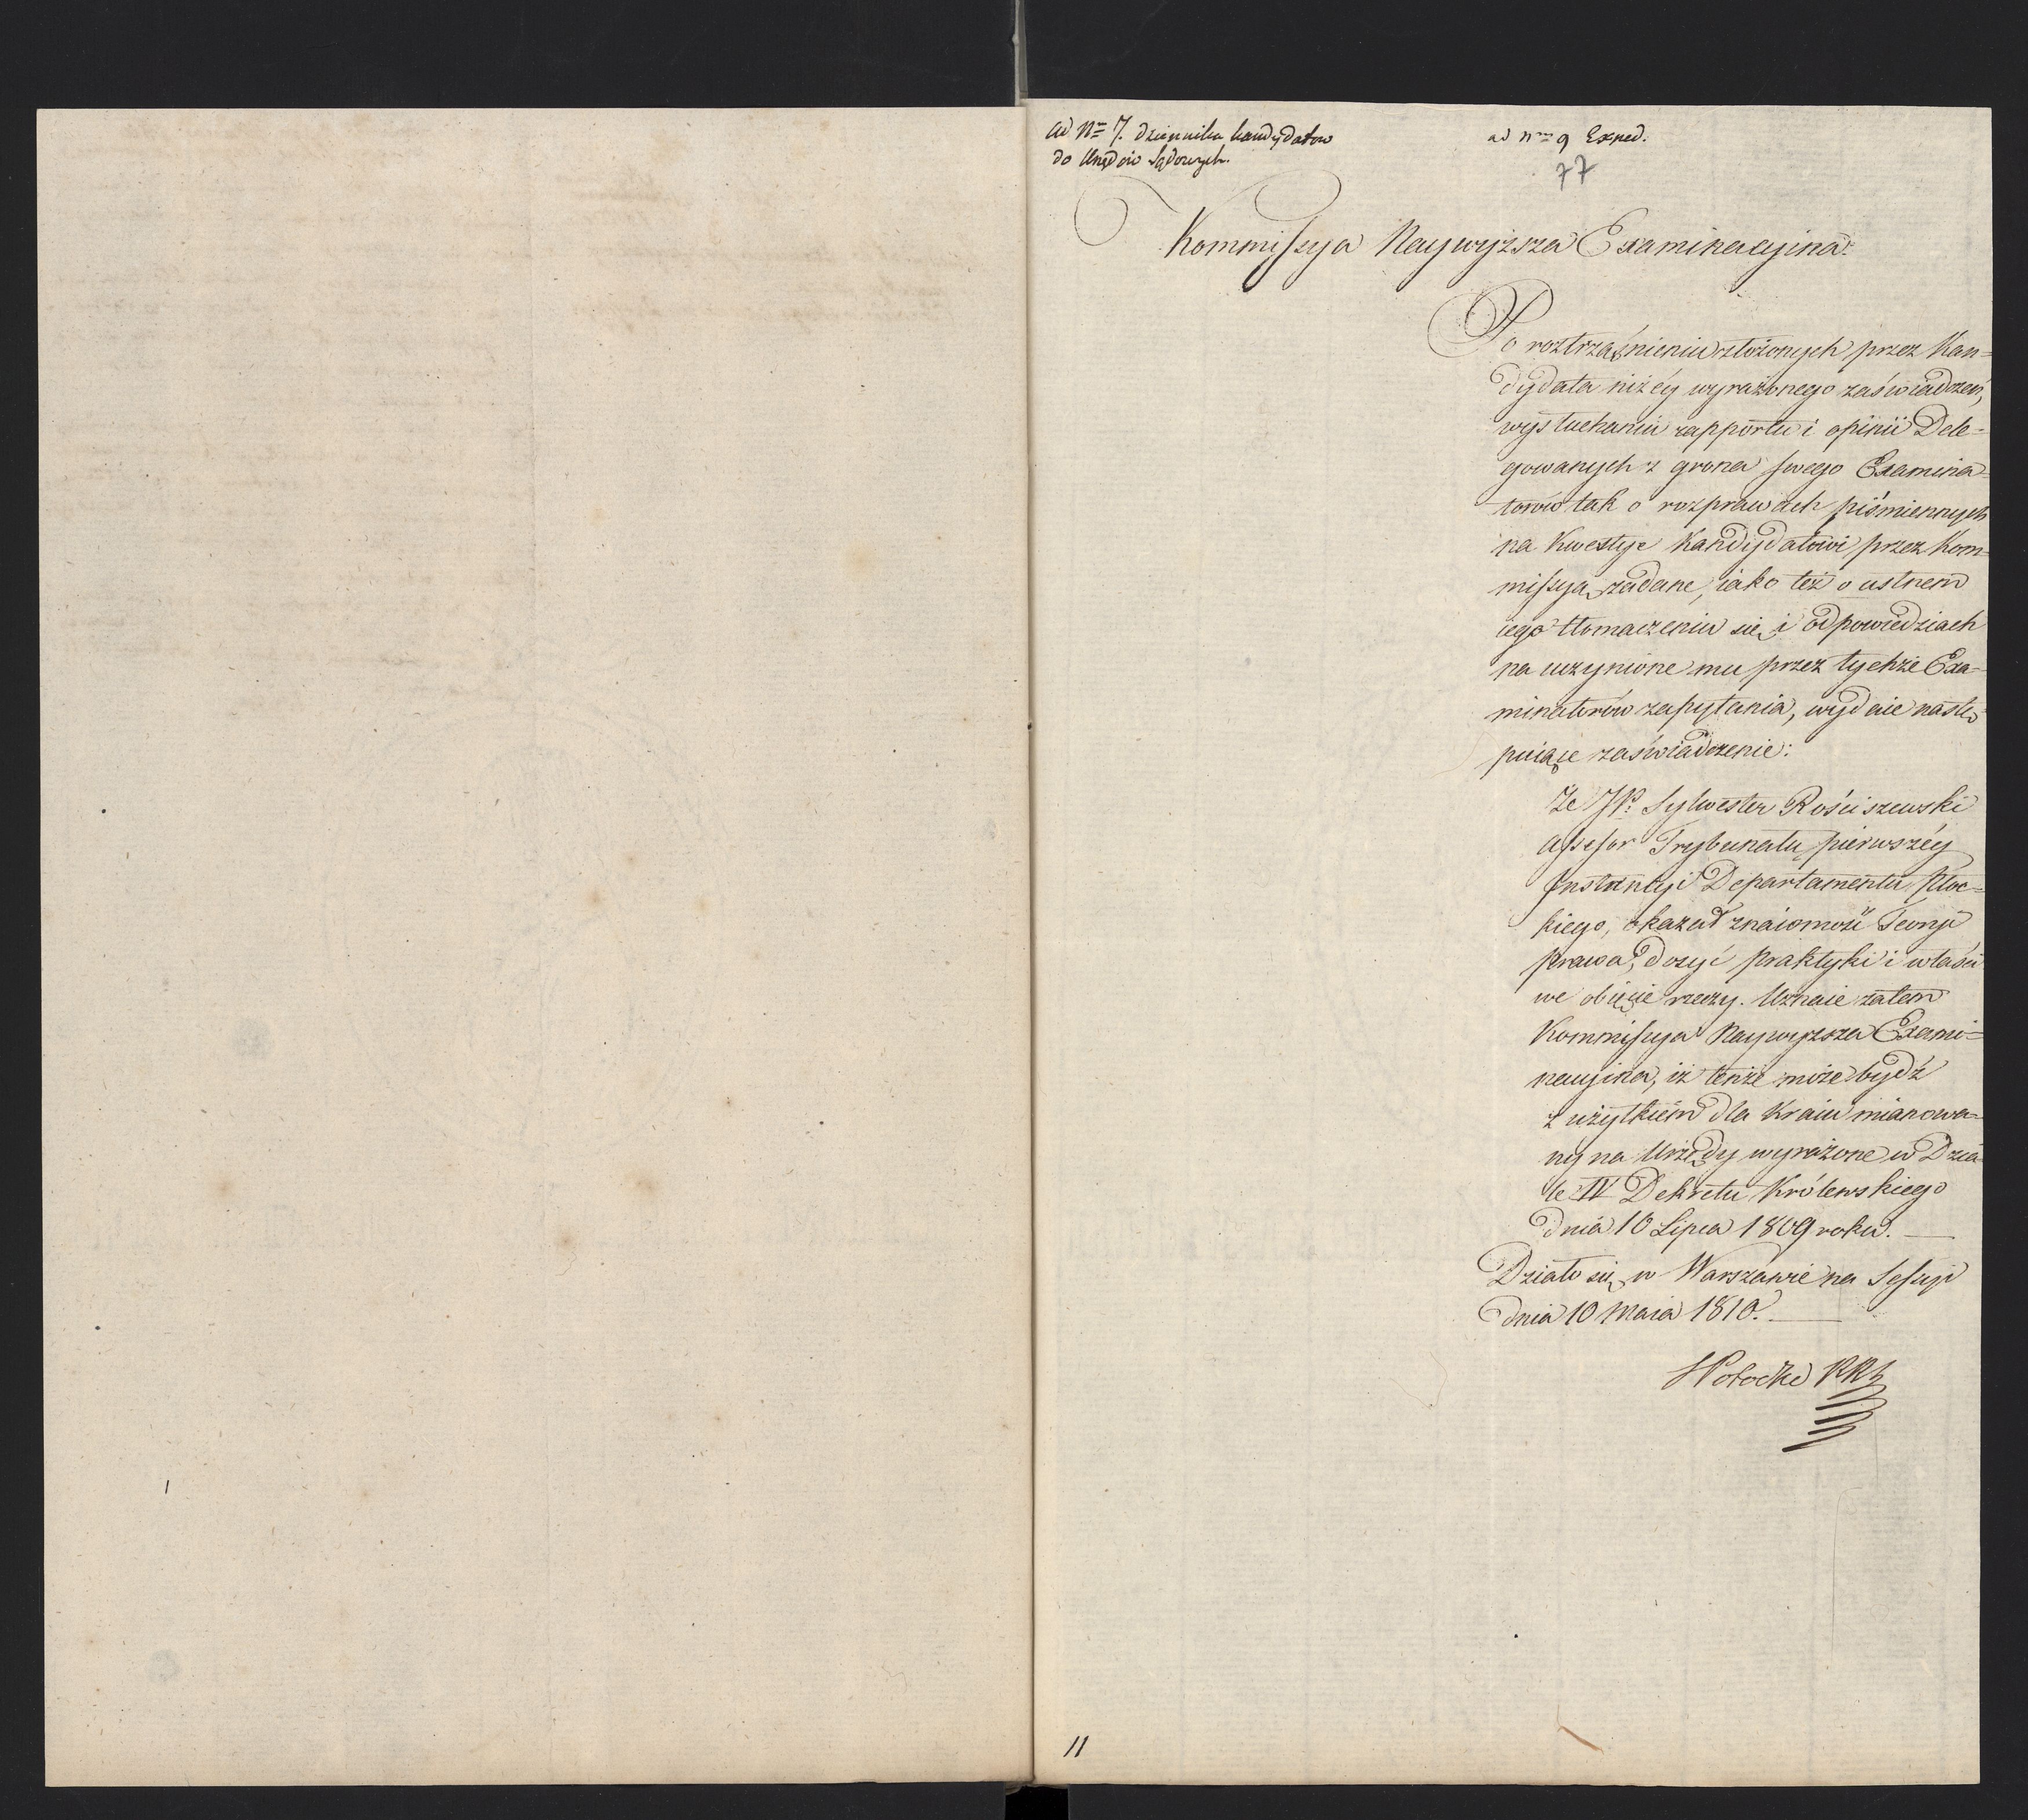 ad Nro 7. dziennika kandydatow
do Urzędów Sądowych.
ad Nro 9 Exped.
77
Kommissya Naywyższa Examinacyina.
Po roztrząśnieniu złożonych przez Kan=
dydata niżéy wyrażonego zaświadczeń,
wysłuchaniu rapportu i opinii Dele=
gowanych z grona swego Examina=
torów tak o rozprawach piśmiennych
na Kwestye Kandydatowi przez Kom=
missyą zadane, iako też o ustnem
iego tłomaczeniu się i odpowiedziach
na uczynione mu przez tychże Exa=
minatorów zapytania, wydaie nastę=
puiące zaświadczenie:
Ze JP. Sylwester Rościszewski
Assessor Trybunału pierwszéy
Instancyi Departamentu Płoc=
kiego, okazał znaiomość Teoryi
prawa, dosyć praktyki i właści
we obięcie rzeczy. Uznaie zatem
Kommissya Naywyższa Exami=
nacyina, iż tenże może bydź
z użytkiem dla Kraiu mianowa=
ny na Urzędy wyrażone w Dzia=
le IV Dekretu Królewskiego
dnia 10 Lipca 1809 roku.
Działo się w Warszawie na Sessyi
dnia 10 Maia 1810.
S Potocki
11